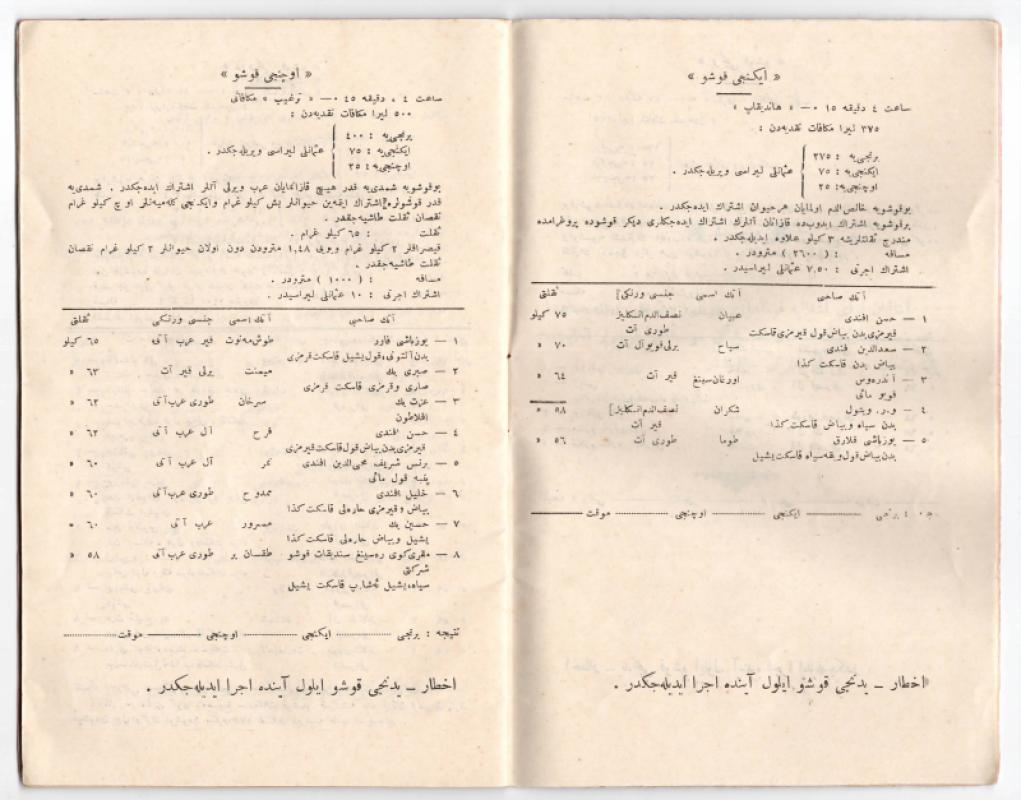 « ایکنجی قوشو »
ساعت ٤ دقیقه ١٥ — « هاندیقاپ »
٣٧٥ لیرا مکافات نقدیه‌دن :
برنجی‌یه : ٢٧٥
ایکنجی‌یه : ٧٥ عثمانلی لیراسی ویریله‌جکدر .
اوچنجی‌یه : ٢٥
بوقوشویه خالص‌الدم اولمایان هرحیوان اشتراك ایده‌جکدر .
برقوشویه اشتراك ایدوبده قازانان آتلرك اشتراك ایده‌جکلری دیکر قوشوده پروغرامده
مندرج ثقلتلرینه ٣ کیلو علاوه ایدیله‌جکدر .
مسافه : ( ٢٦٠٠ ) مترودر .
اشتراك اجرتی : ٧,٥٠ عثمانلی لیراسیدر .
آتك صاحبی آتك اسمی جنسی ورنکی ثقلتی
١ — حسن افندی عبیان نصف‌الدم انسکلیز ٧٥ کیلو
قیرمزی بدن بیاض قول قیرمزی قاسکت طوری آت
٢ — سعدالدین فندی سیاح یرلی قویو آل آت ٧٠ »
بیاض بدن قاسکت کذا
٣ — آندره‌وس اورنمان سینغ قیر آت ٦٤ »
قویو مائی
٤ — و.ر. ویتول شکران نصف‌الدم انسکلیز ٥٨ »
بدن سیاه وبیاض قاسکت کذا قیر آت
٥ — یوزباشی قلارق طوما طوری آت ٥٦ »
بدن بیاض قول ویقه سیاه قاسکت یشیل
برنجی ایکنجی اوچنجی موقت
اخطار — یدنجی قوشو ایلول آینده اجرا ایدیله‌جکدر .
« اوچنجی قوشو »
ساعت ٤ ، دقیقه ٤٥ — « ترغیب » مکافاتی
٥٠٠ لیرا مکافات نقدیه‌دن :
برنجی‌یه : ٤٠٠
ایکنجی‌یه : ٧٥ عثمانلی لیراسی ویریله‌جکدر .
اوچنجی‌یه : ٢٥
بوقوشویه شمدی‌یه قدر هیچ قازانمایان عرب ویرلی آتلر اشتراك ایده‌جکدر . شمدی‌یه
قدر قوشولره اشتراك ایتمه‌ین حیوانلر بش کیلو غرام وایکنجی کله‌میه‌نلر اوچ کیلو غرام
نقصان ثقلت طاشیه‌جقدر .
ثقلت : ٦٥ کیلو غرام .
قیصراقلر ٢ کیلو غرام وبویی ١,٤٨ مترودن دون اولان حیوانلر ٢ کیلو غرام نقصان
ثقلت طاشیه‌جقدر .
مسافه : ( ١٠٠٠ ) مترودر .
اشتراك اجرتی : ١٠ عثمانلی لیراسیدر .
آتك صاحبی آتك اسمی جنسی ورنکی ثقلتی
١ — یوزباشی فاور طوش‌مه‌نوت قیر عرب آتی ٦٥ کیلو
بدن آلتونی، قول یشیل قاسکت قرمزی
٢ — صبری بك میمنت یرلی قیر آت ٦٣ »
صاری وقرمزی قاسکت قرمزی
٣ — عزت بك سرخان طوری عرب آتی ٦٢ »
افلاطون
٤ — حسن افندی فرح آل عرب آتی ٦٢ »
قیرمزی بدن بیاض قول قاسکت قیرمزی
٥ — برنس شریف محی‌الدین افندی نمر آل عرب آتی ٦٠ »
پنبه قول مائی
٦ — خلیل افندی ممدوح طوری عرب آتی ٦٠ »
بیاض وقیرمزی حاره‌لی قاسکت کذا
٧ — حسین بك مسرور عرب آتی ٦٠ »
یشیل وبیاض حاره‌لی قاسکت کذا
٨ — مقری‌کوی ره‌سینغ سندیقات قوشو طقسان بر طوری عرب آتی ٥٨ »
شرکتی
سیاه، یشیل قاسکت یشیل
نتیجه : برنجی ایکنجی اوچنجی موقت
اخطار — یدنجی قوشو ایلول آینده اجرا ایدیله‌جکدر .